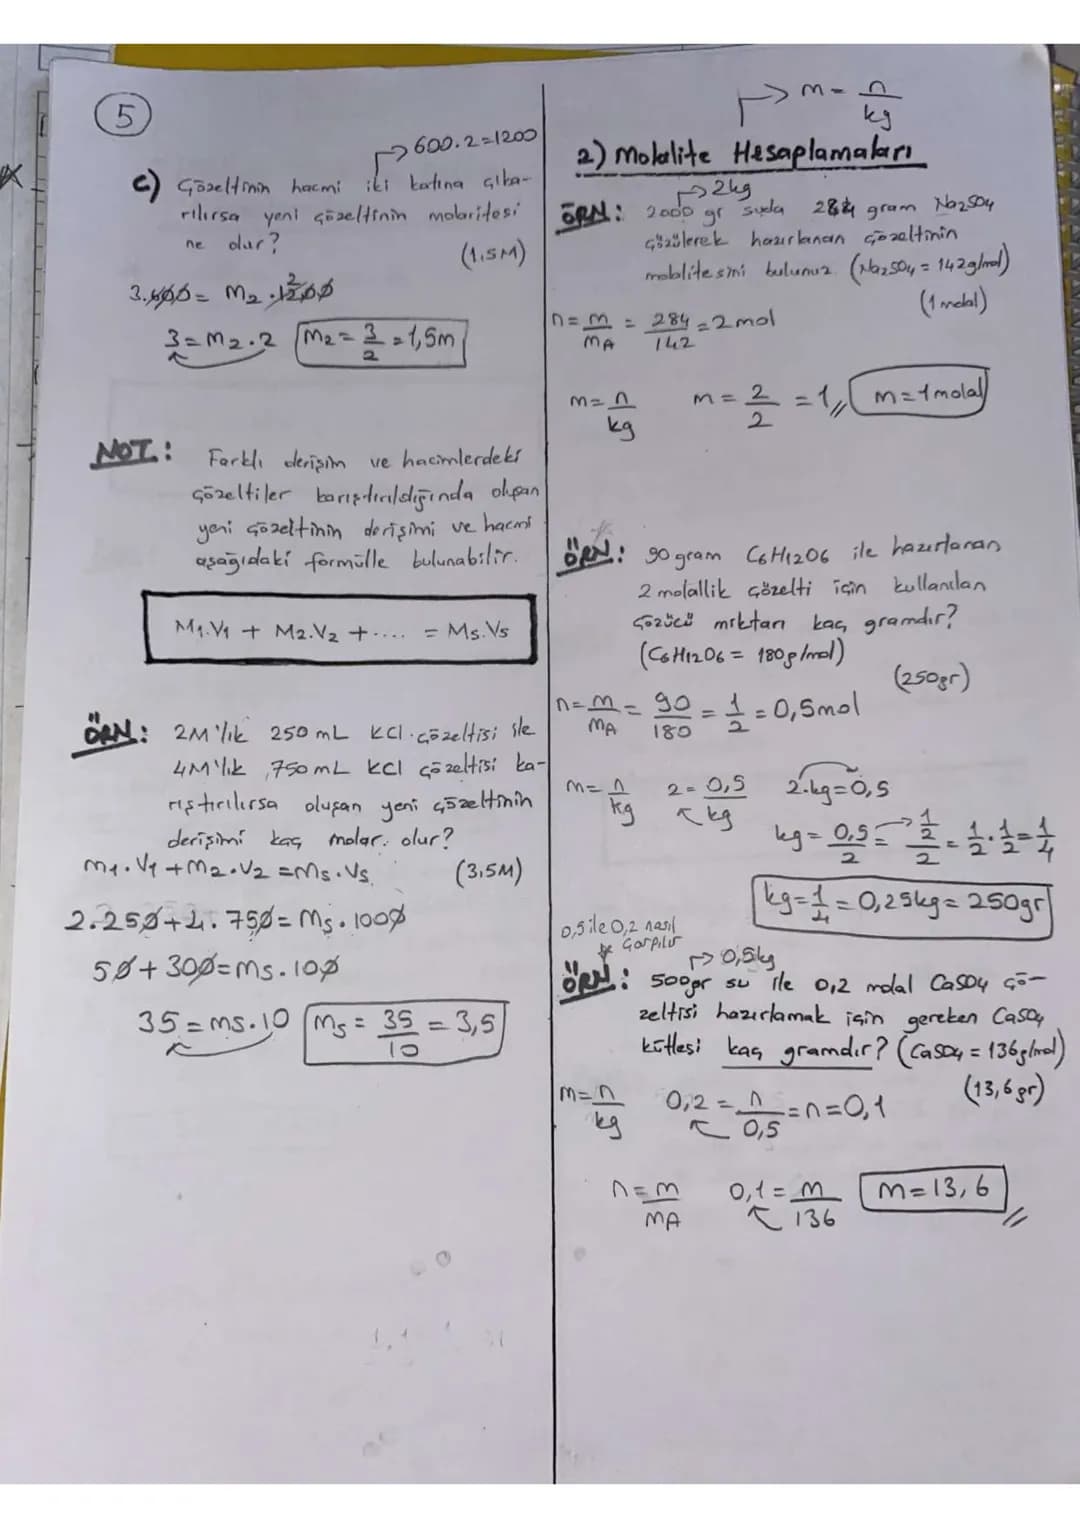 5
→ 600.2=1200
c) Çözeltinin hacmi iki katına çıka-
rılırsa yeni çözeltinin molaritesi
ne olur?
(1,5M)
3.600 = M2.1200 2
3=M2.2 M2=3/2=1,5M
NOT: Farklı derişim ve hacimlerdeki
çözeltiler karıştırıldığında oluşan
yeni çözeltinin derişimi ve hacmi
aşağıdaki formülle bulunabilir.
M1.V1 + M2.V2 + .... = Ms.Vs
ÖRN: 2M'lık 250 mL KCl çözeltisi ile
4M'lık 750 mL KCl çözeltisi ka-
rıştırılırsa oluşan yeni çözeltinin
derişimi kaç molar olur?
M1.V1+M2.V2=Ms.Vs (3,5M)
2.250+4.750=Ms.1000
50+300=Ms.100
35=Ms.10 Ms=35/10=3,5
→ m=n/kg
2) Molalite Hesaplamaları
→2kg
ÖRN: 2000 gr suda 284 gram Na2SO4
çözülerek hazırlanan çözeltinin
molalitesini bulunuz. (Na2SO4=142g/mol)
(1 molal)
n=m/MA=284/142=2mol
m=n/kg m=2/2=1 m=1molal
ÖRN: 90 gram C6H12O6 ile hazırlanan
2 molallik çözelti için kullanılan
çözücü miktarı kaç gramdır?
(C6H12O6= 180g/mol)
(250gr)
n=m/MA=90/180=1/2=0,5mol
m=n/kg 2=0,5/kg 2.kg=0,5
kg=0,5/2=→1/2/2=1/2.1/2=1/4
kg=1/4=0,25kg=250gr
0,5 ile 0,2 nasıl
çarpılır
→0,5kg
ÖRN: 500gr su ile 0,2 molal CaSO4 çö-
zeltisi hazırlamak için gereken CaSO4
kütlesi kaç gramdır? (CaSO4=136g/mol)
(13,6gr)
m=n/kg 0,2=n/0,5=n=0,1
n=m/MA 0,1=m/136 m=13,6